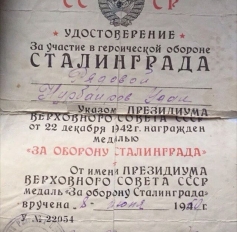 СС СР
УДОСТОВЕРЕНИЕ
За участие в героической обороне
СТАЛИНГРАДА
Рядовой
Указом ПРЕЗИДИУМА
ВЕРХОВНОГО СОВЕТА СССР
от 22 декабря 1942 г. награжден
медалью
«ЗА ОБОРОНУ СТАЛИНГРАДА»
От имени ПРЕЗИДИУМА
ВЕРХОВНОГО СОВЕТА СССР
медаль „За оборону Сталинграда"
вручена июня 194 г.
У № 22054